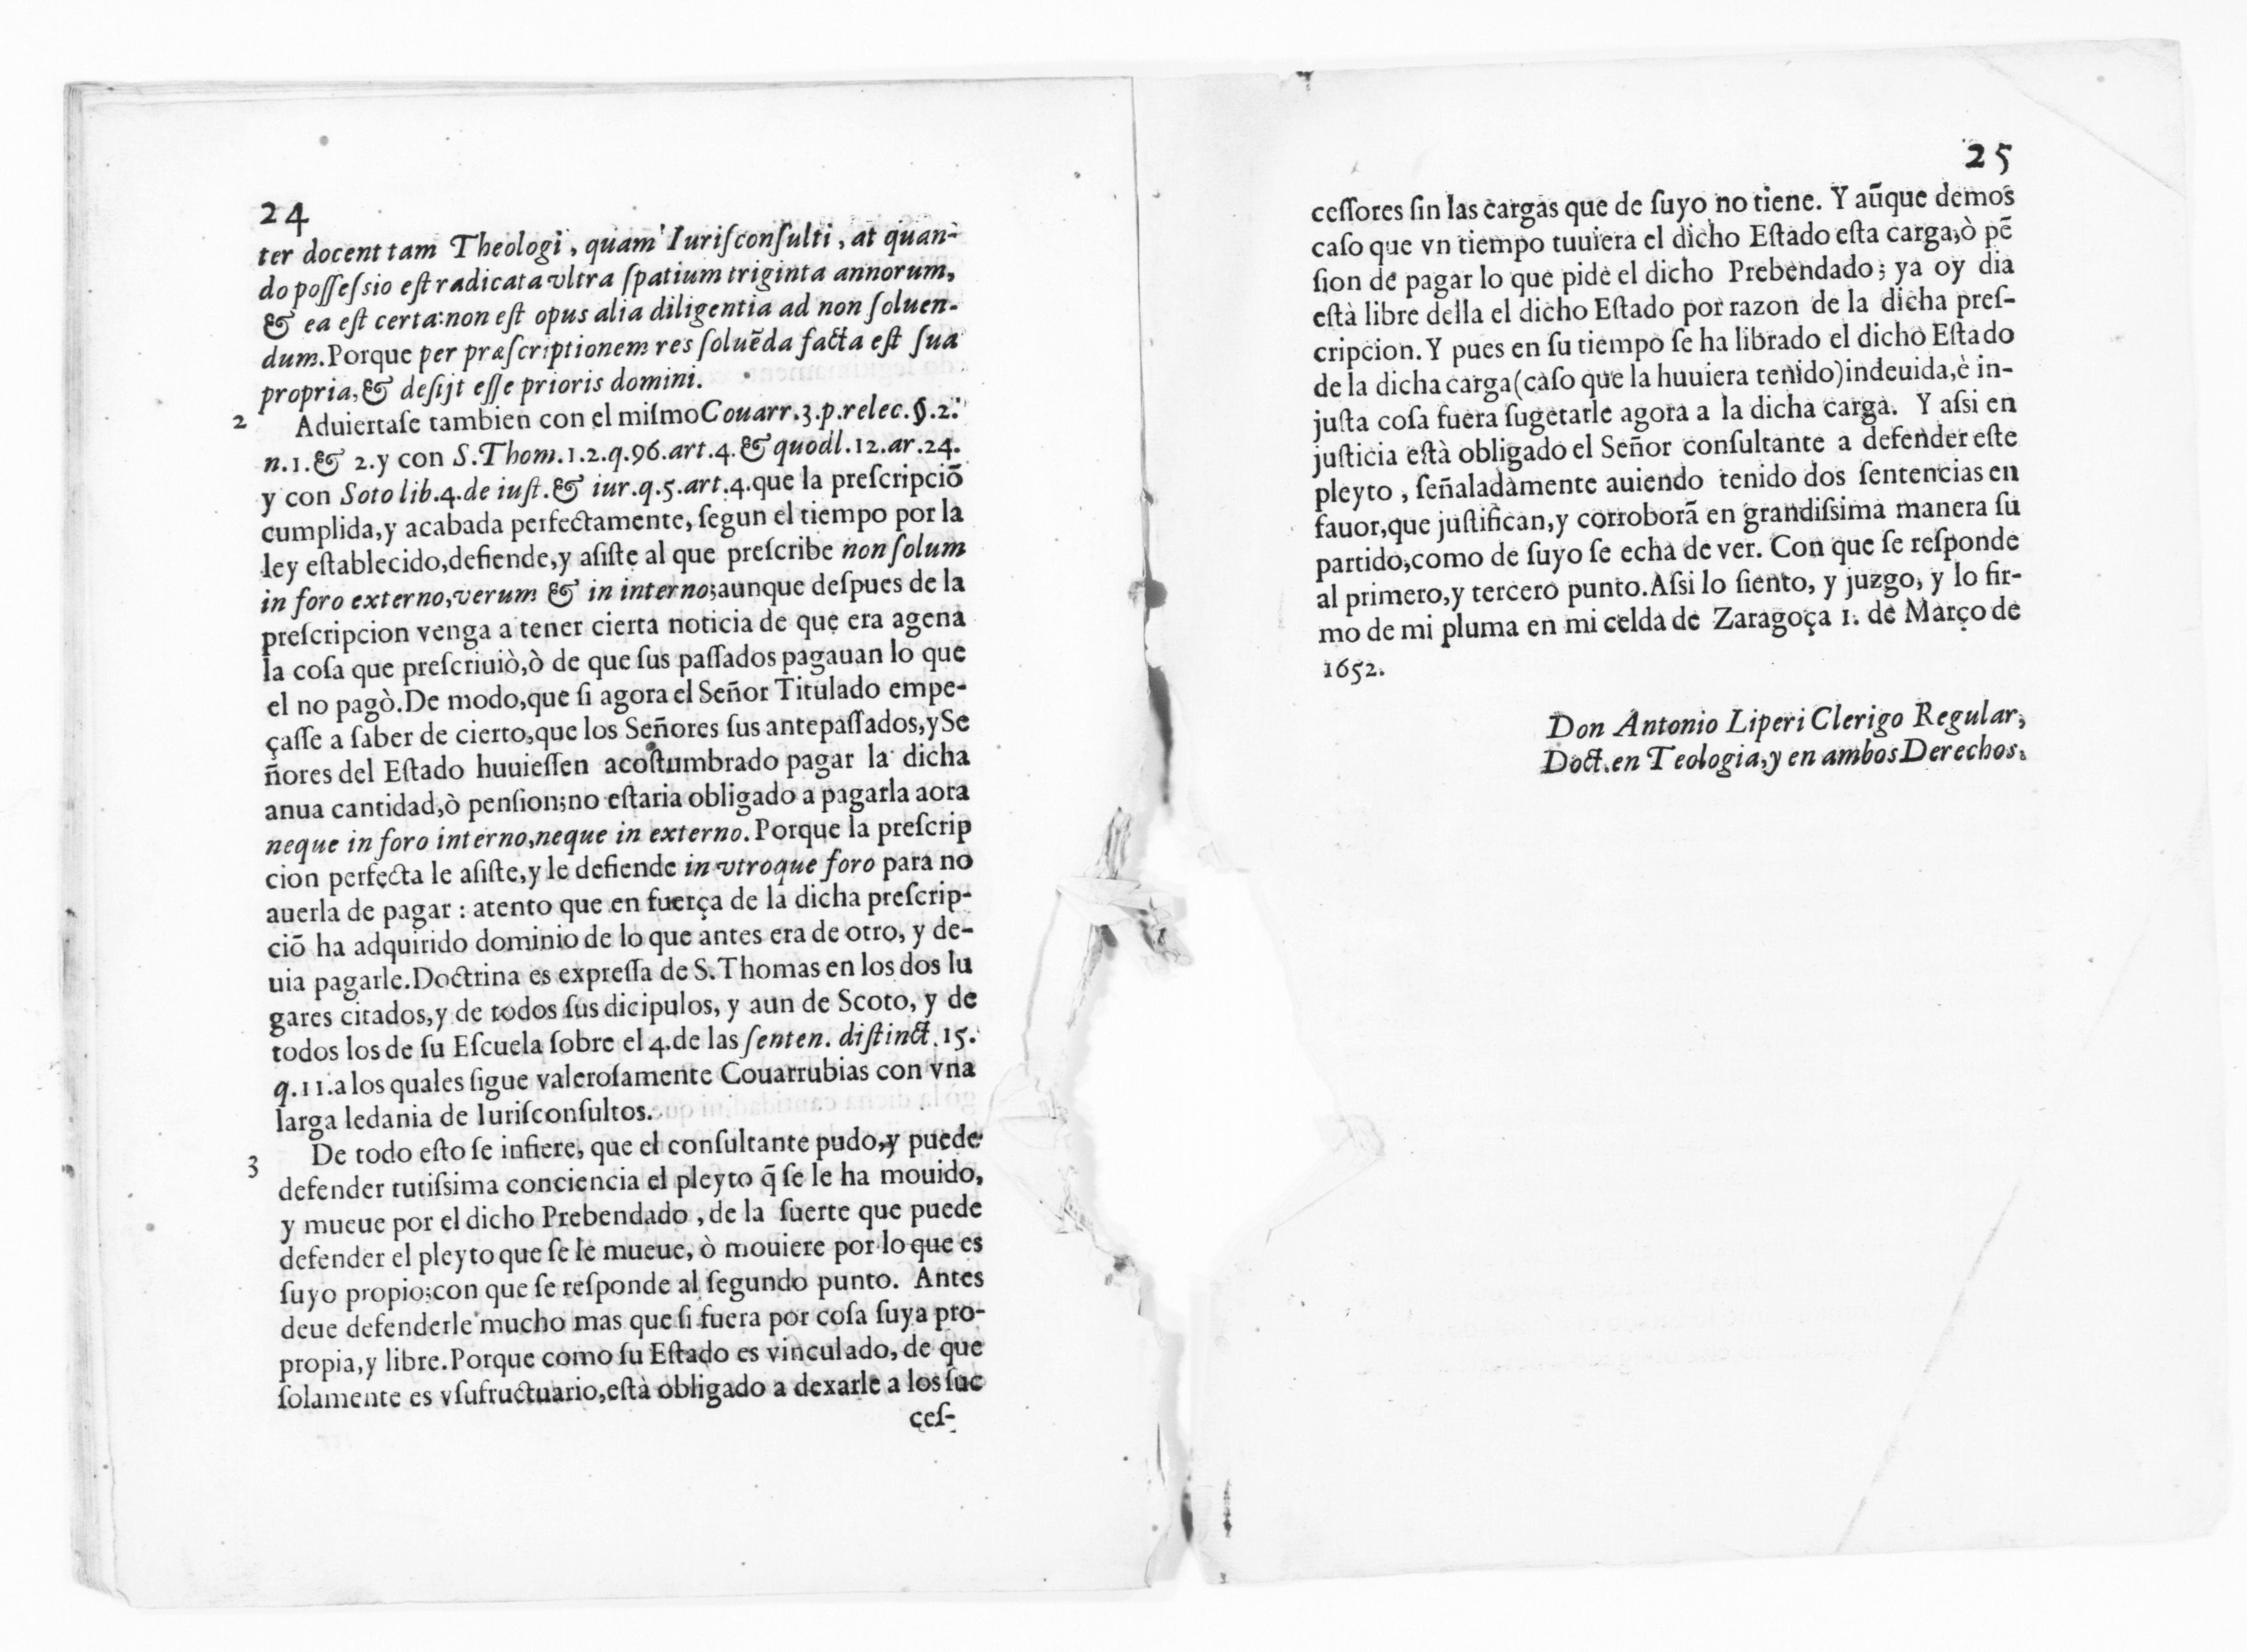 24
ter docent tam Theologi, quam Iuriſconſulti, at quan-
do poſſeſsio eſt radicata vltra ſpatium triginta annorum,
& ea eſt certa: non eſt opus alia diligentia ad non ſoluen-
dum. Porque per præſcriptionem res ſoluẽda facta eſt ſua
propria, & deſijt eſſe prioris domini.
2 Aduiertaſe tambien con el miſmo Couarr. 3. p. relec. §. 2.
n. 1. & 2. y con S. Thom. 1. 2. q. 96. art. 4. & quodl. 12. ar. 24.
y con Soto lib. 4. de iuſt. & iur. q. 5. art. 4. que la preſcripciõ
cumplida, y acabada perfectamente, ſegun el tiempo por la
ley eſtablecido, defiende, y aſiſte al que preſcribe non ſolum
in foro externo, verum & in interno; aunque deſpues de la
preſcripcion venga a tener cierta noticia de que era agena
la coſa que preſcriuiò, ò de que ſus paſſados pagauan lo que
el no pagò. De modo, que ſi agora el Señor Titulado empe-
çaſſe a ſaber de cierto, que los Señores ſus antepaſſados, y Se
ñores del Eſtado huuieſſen acoſtumbrado pagar la dicha
anua cantidad, ò penſion; no eſtaria obligado a pagarla aora
neque in foro interno, neque in externo. Porque la preſcrip
cion perfecta le aſiſte, y le defiende in vtroque foro para no
auerla de pagar: atento que en fuerça de la dicha preſcrip-
ciõ ha adquirido dominio de lo que antes era de otro, y de-
uia pagarle. Doctrina es expreſſa de S. Thomas en los dos lu
gares citados, y de todos ſus dicipulos, y aun de Scoto, y de
todos los de ſu Eſcuela ſobre el 4. de las ſenten. diſtinct. 15.
q. 11. a los quales ſigue valeroſamente Couarrubias con vna
larga ledania de Iuriſconſultos.
3 De todo eſto ſe infiere, que el conſultante pudo, y puede
defender tutiſsima conciencia el pleyto q̃ ſe le ha mouido,
y mueue por el dicho Prebendado, de la ſuerte que puede
defender el pleyto que ſe le mueue, ò mouiere por lo que es
ſuyo propio; con que ſe reſponde al ſegundo punto. Antes
deue defenderle mucho mas que ſi fuera por coſa ſuya pro-
propia, y libre. Porque como ſu Eſtado es vinculado, de que
ſolamente es vſufructuario, eſtà obligado a dexarle a los ſuc
ceſ-
25
ceſſores ſin las cargas que de ſuyo no tiene. Y aũque demos
caſo que vn tiempo tuuiera el dicho Eſtado eſta carga, ò pẽ
ſion de pagar lo que pide el dicho Prebendado; ya oy dia
eſtà libre della el dicho Eſtado por razon de la dicha preſ-
cripcion. Y pues en ſu tiempo ſe ha librado el dicho Eſtado
de la dicha carga (caſo que la huuiera tenido) indeuida, è in-
juſta coſa fuera ſugetarle agora a la dicha carga. Y aſsi en
juſticia eſtà obligado el Señor conſultante a defender eſte
pleyto, ſeñaladamente auiendo tenido dos ſentencias en
fauor, que juſtifican, y corroborã en grandiſsima manera ſu
partido, como de ſuyo ſe echa de ver. Con que ſe reſponde
al primero, y tercero punto. Aſsi lo ſiento, y juzgo, y lo fir-
mo de mi pluma en mi celda de Zaragoça 1. de Março de
1652.
Don Antonio Liperi Clerigo Regular,
Doct. en Teologia, y en ambos Derechos.